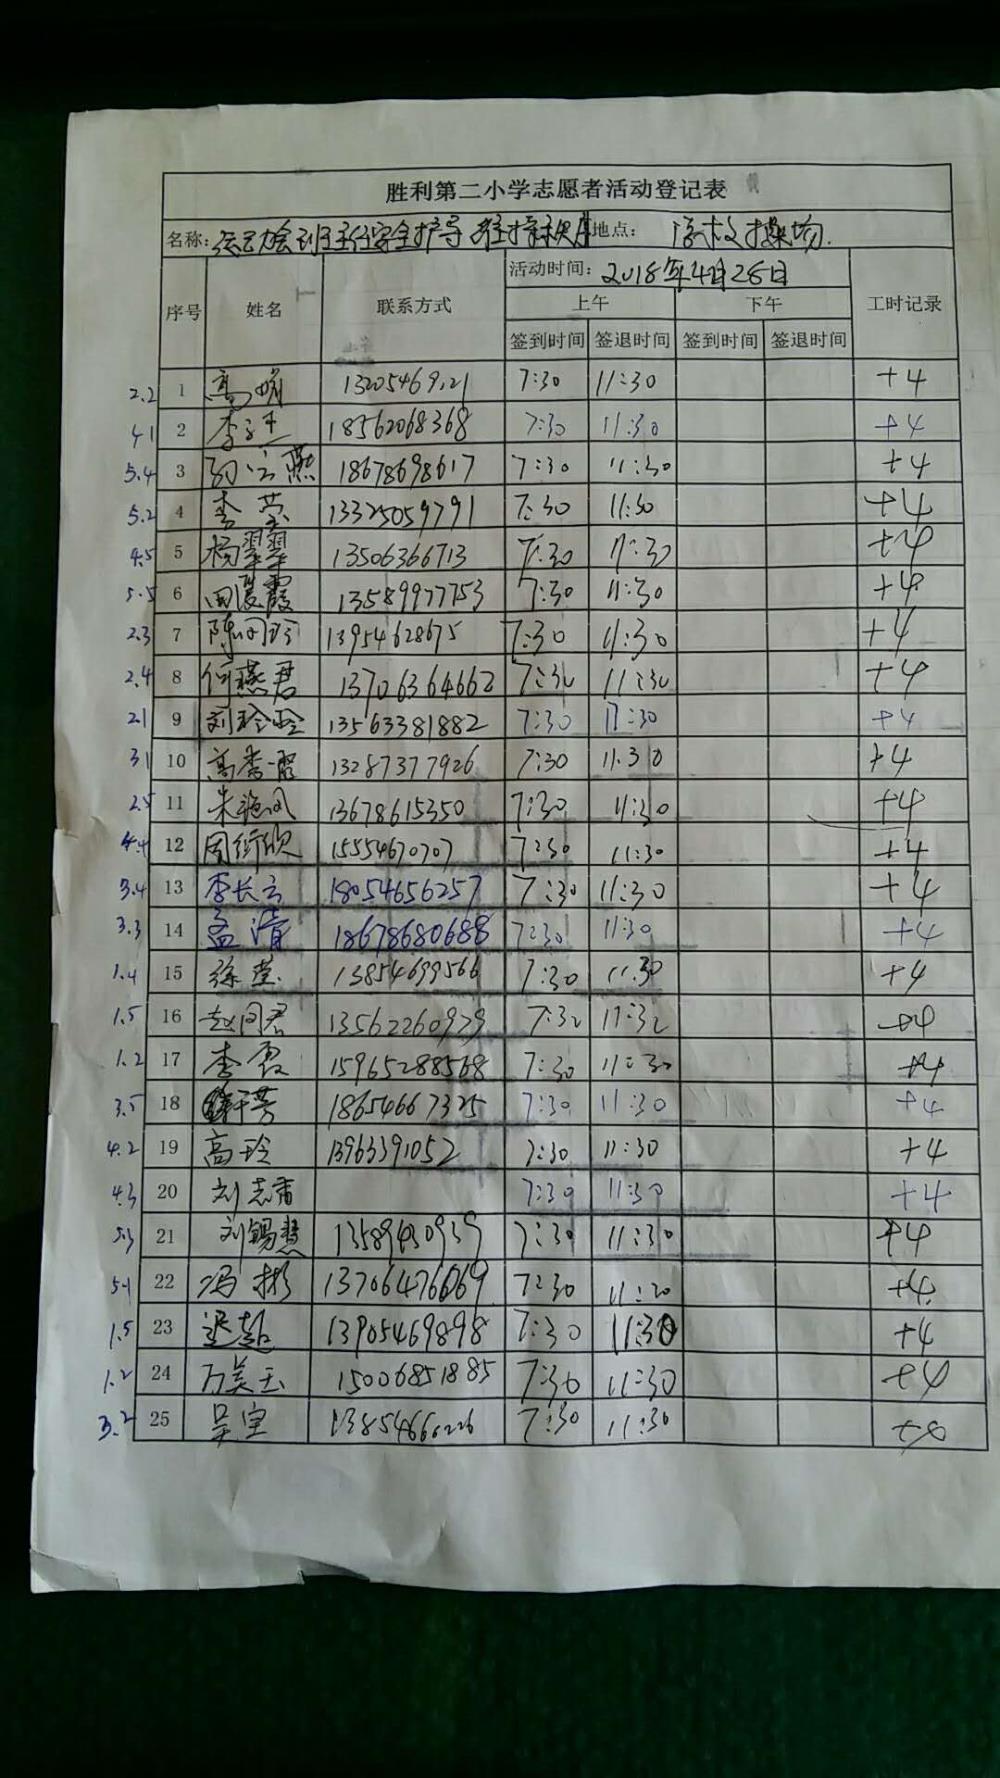 胜利第二小学志愿者活动登记表
名称: 运动会班主任安全护导 维持秩序 地点: 学校操场.
活动时间: 2018年4月28日
序号 姓名 联系方式 上午 下午 工时记录
签到时间 签退时间 签到时间 签退时间
2.2 1 高娟 7:30 11:30 +4
4.1 2 18562068368 7:30 11:30 +4
5.4 3 18678698617 7:30 11:30 +4
5.2 4 13325059791 7:30 11:30 +4
4.5 5 杨翠翠 13506366713 7:30 11:30 +4
5.5 6 田霞霞 13589977753 7:30 11:30 +4
2.3 7 13954628675 7:30 11:30 +4
2.4 8 何燕君 13706364662 7:30 11:30 +4
2.1 9 刘玲玲 13563381882 7:30 11:30 +4
3.1 10 高秀霞 13287377926 7:30 11:30 +4
2.5 11 朱艳凤 13678615350 7:30 11:30 +4
4.4 12 周衍欣 15554670707 7:30 11:30 +4
3.4 13 李长云 18054656257 7:30 11:30 +4
3.3 14 孟清 18678680688 7:30 11:30 +4
1.4 15 徐莹 13854699566 7:30 11:30 +4
1.5 16 赵同君 13562260979 7:32 11:32 +4
1.2 17 李霞 15965288568 7:30 11:30 +4
3.5 18 18654667325 7:30 11:30 +4
4.2 19 高玲 13963391052 7:30 11:30 +4
4.3 20 刘志香 7:30 11:30 +4
5.3 21 刘锡慧 7:30 11:30 +4
5.1 22 冯彬 13706476669 7:30 11:20 +4
1.5 23 13905469898 7:30 11:30 +4
1.2 24 万美玉 15006851885 7:30 11:30 +4
3.2 25 吴宝 7:30 11:30